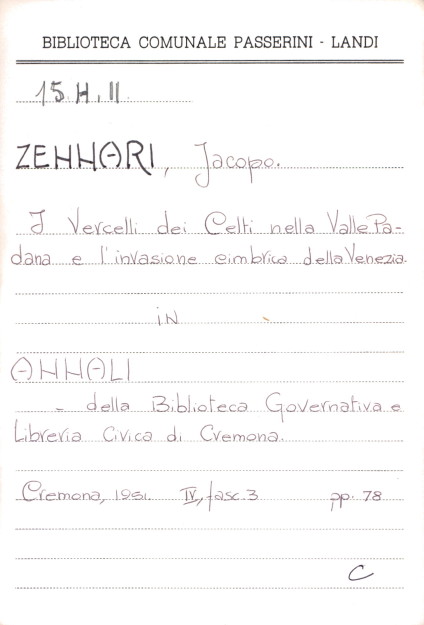 BIBLIOTECA COMUNALE PASSERINI - LANDI
15.H.11
ZENNARI, Jacopo.
I Vercelli dei Celti nella Valle Pa-
dana e l'invasione cimbrica della Venezia.
IN
ANNALI
- della Biblioteca Governativa e
Libreria Civica di Cremona.
Cremona, 1951. IV, fasc. 3 pp. 78
C